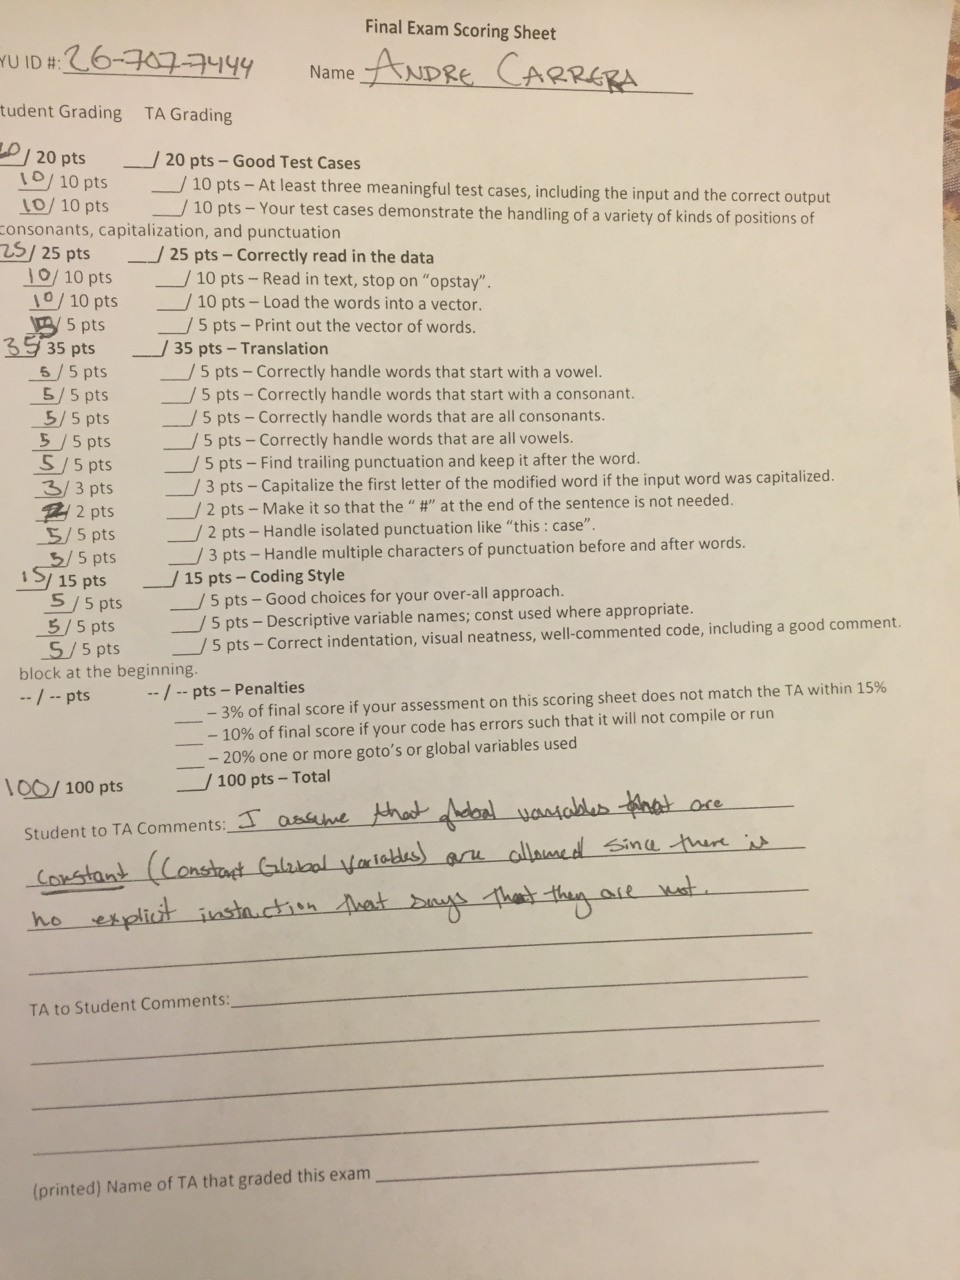 Final Exam Scoring Sheet
YU ID #: 26-707-7444 Name ANDRE CARRERA
tudent Grading TA Grading
20/ 20 pts ___/ 20 pts – Good Test Cases
10/ 10 pts ___/ 10 pts – At least three meaningful test cases, including the input and the correct output
10/ 10 pts ___/ 10 pts – Your test cases demonstrate the handling of a variety of kinds of positions of
consonants, capitalization, and punctuation
25/ 25 pts ___/ 25 pts – Correctly read in the data
10/ 10 pts ___/ 10 pts – Read in text, stop on “opstay”.
10/ 10 pts ___/ 10 pts – Load the words into a vector.
/ 5 pts ___/ 5 pts – Print out the vector of words.
35/ 35 pts ___/ 35 pts – Translation
5/ 5 pts ___/ 5 pts – Correctly handle words that start with a vowel.
5/ 5 pts ___/ 5 pts – Correctly handle words that start with a consonant.
5/ 5 pts ___/ 5 pts – Correctly handle words that are all consonants.
5/ 5 pts ___/ 5 pts – Correctly handle words that are all vowels.
5/ 5 pts ___/ 5 pts – Find trailing punctuation and keep it after the word.
3/ 3 pts ___/ 3 pts – Capitalize the first letter of the modified word if the input word was capitalized.
2/ 2 pts ___/ 2 pts – Make it so that the “ #” at the end of the sentence is not needed.
5/ 5 pts ___/ 2 pts – Handle isolated punctuation like “this : case”.
5/ 5 pts ___/ 3 pts – Handle multiple characters of punctuation before and after words.
15/ 15 pts ___/ 15 pts – Coding Style
5/ 5 pts ___/ 5 pts – Good choices for your over-all approach.
5/ 5 pts ___/ 5 pts – Descriptive variable names; const used where appropriate.
5/ 5 pts ___/ 5 pts – Correct indentation, visual neatness, well-commented code, including a good comment.
block at the beginning.
-- / -- pts -- / -- pts – Penalties
___ – 3% of final score if your assessment on this scoring sheet does not match the TA within 15%
___ – 10% of final score if your code has errors such that it will not compile or run
___ – 20% one or more goto’s or global variables used
100/ 100 pts ___/ 100 pts – Total
Student to TA Comments: I assume that global variables that are
constant (Constant Global Variables) are allowed since there is
no explicit instruction that says that they are not.
TA to Student Comments:
(printed) Name of TA that graded this exam